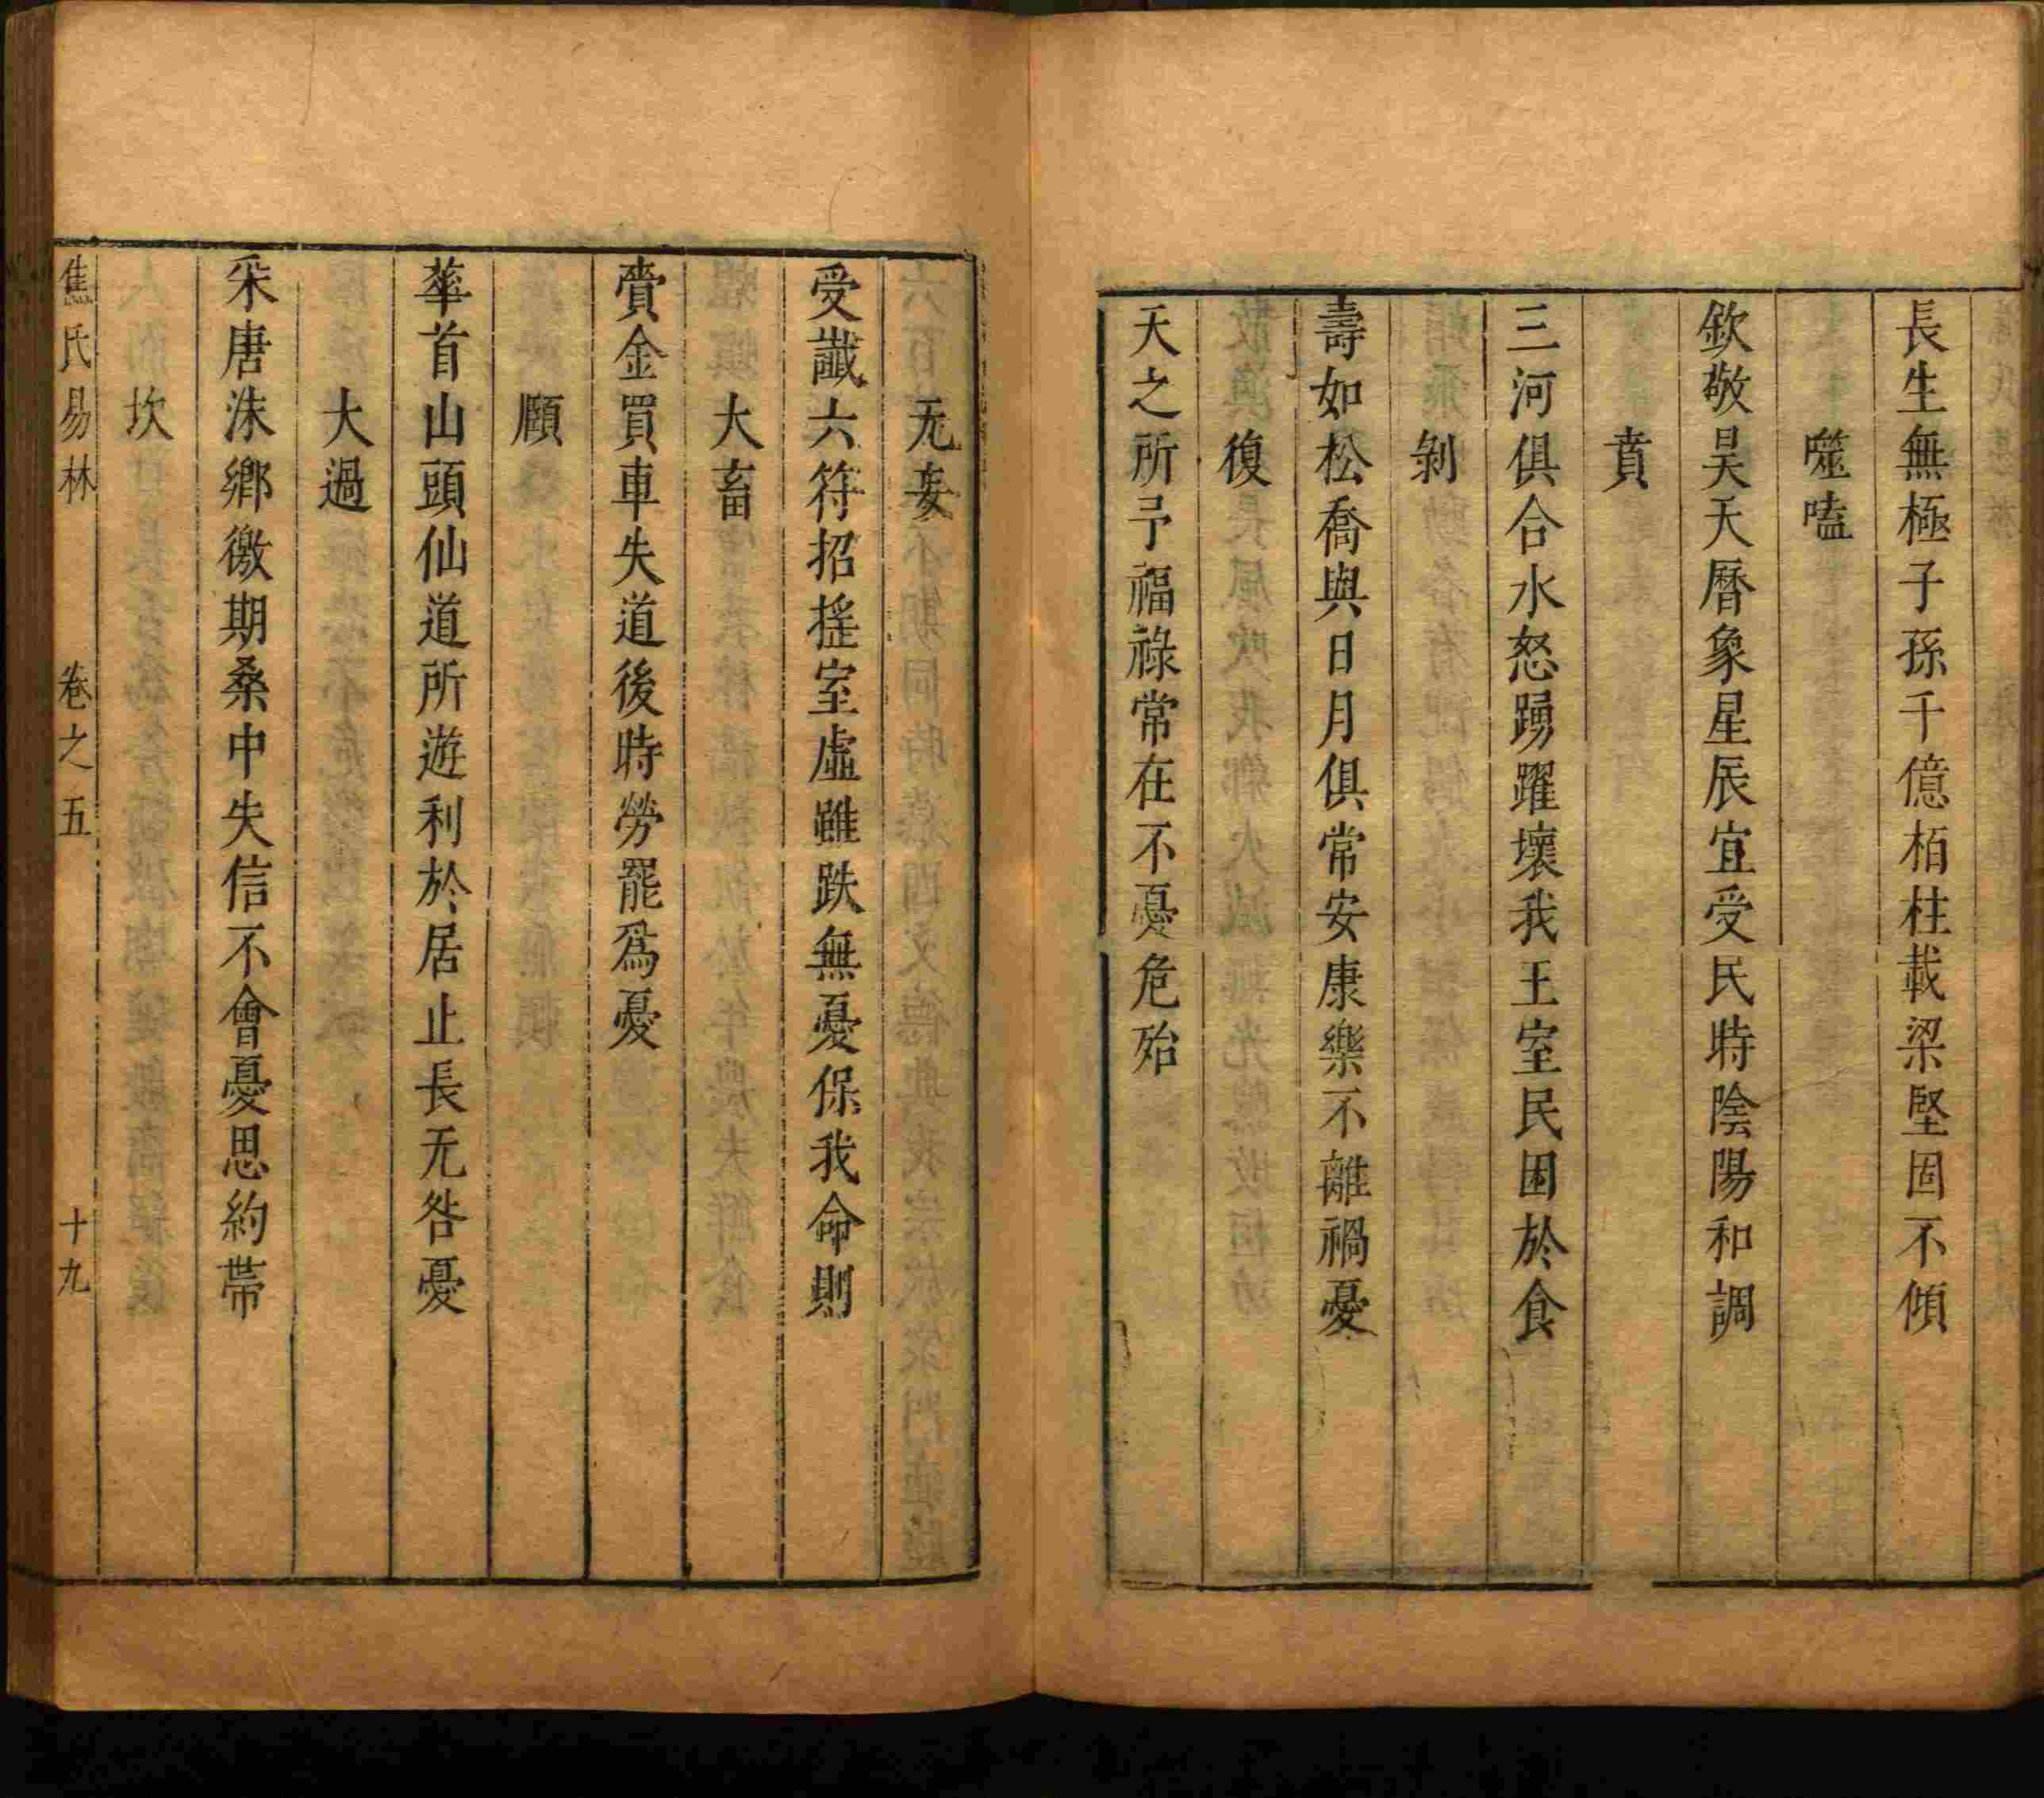 長生無極子孫千億栢柱載梁堅固不傾
噬嗑
欽敬昊天曆象星辰宜受民時陰陽和調
賁
三河俱合水怒踴躍壞我王室民困於食
剝
壽如松喬與日月俱常安康樂不離禍憂
復
天之所予福祿常在不憂危殆
无妄
受讖六符招搖室虛雖跌無憂保我命則
大畜
賫金買車失道後時勞罷爲憂
頤
華首山頭仙道所遊利於居止長无咎憂
大過
采唐沬鄉徼期桑中失信不會憂思約帶
坎
焦氏易林 卷之五 十九